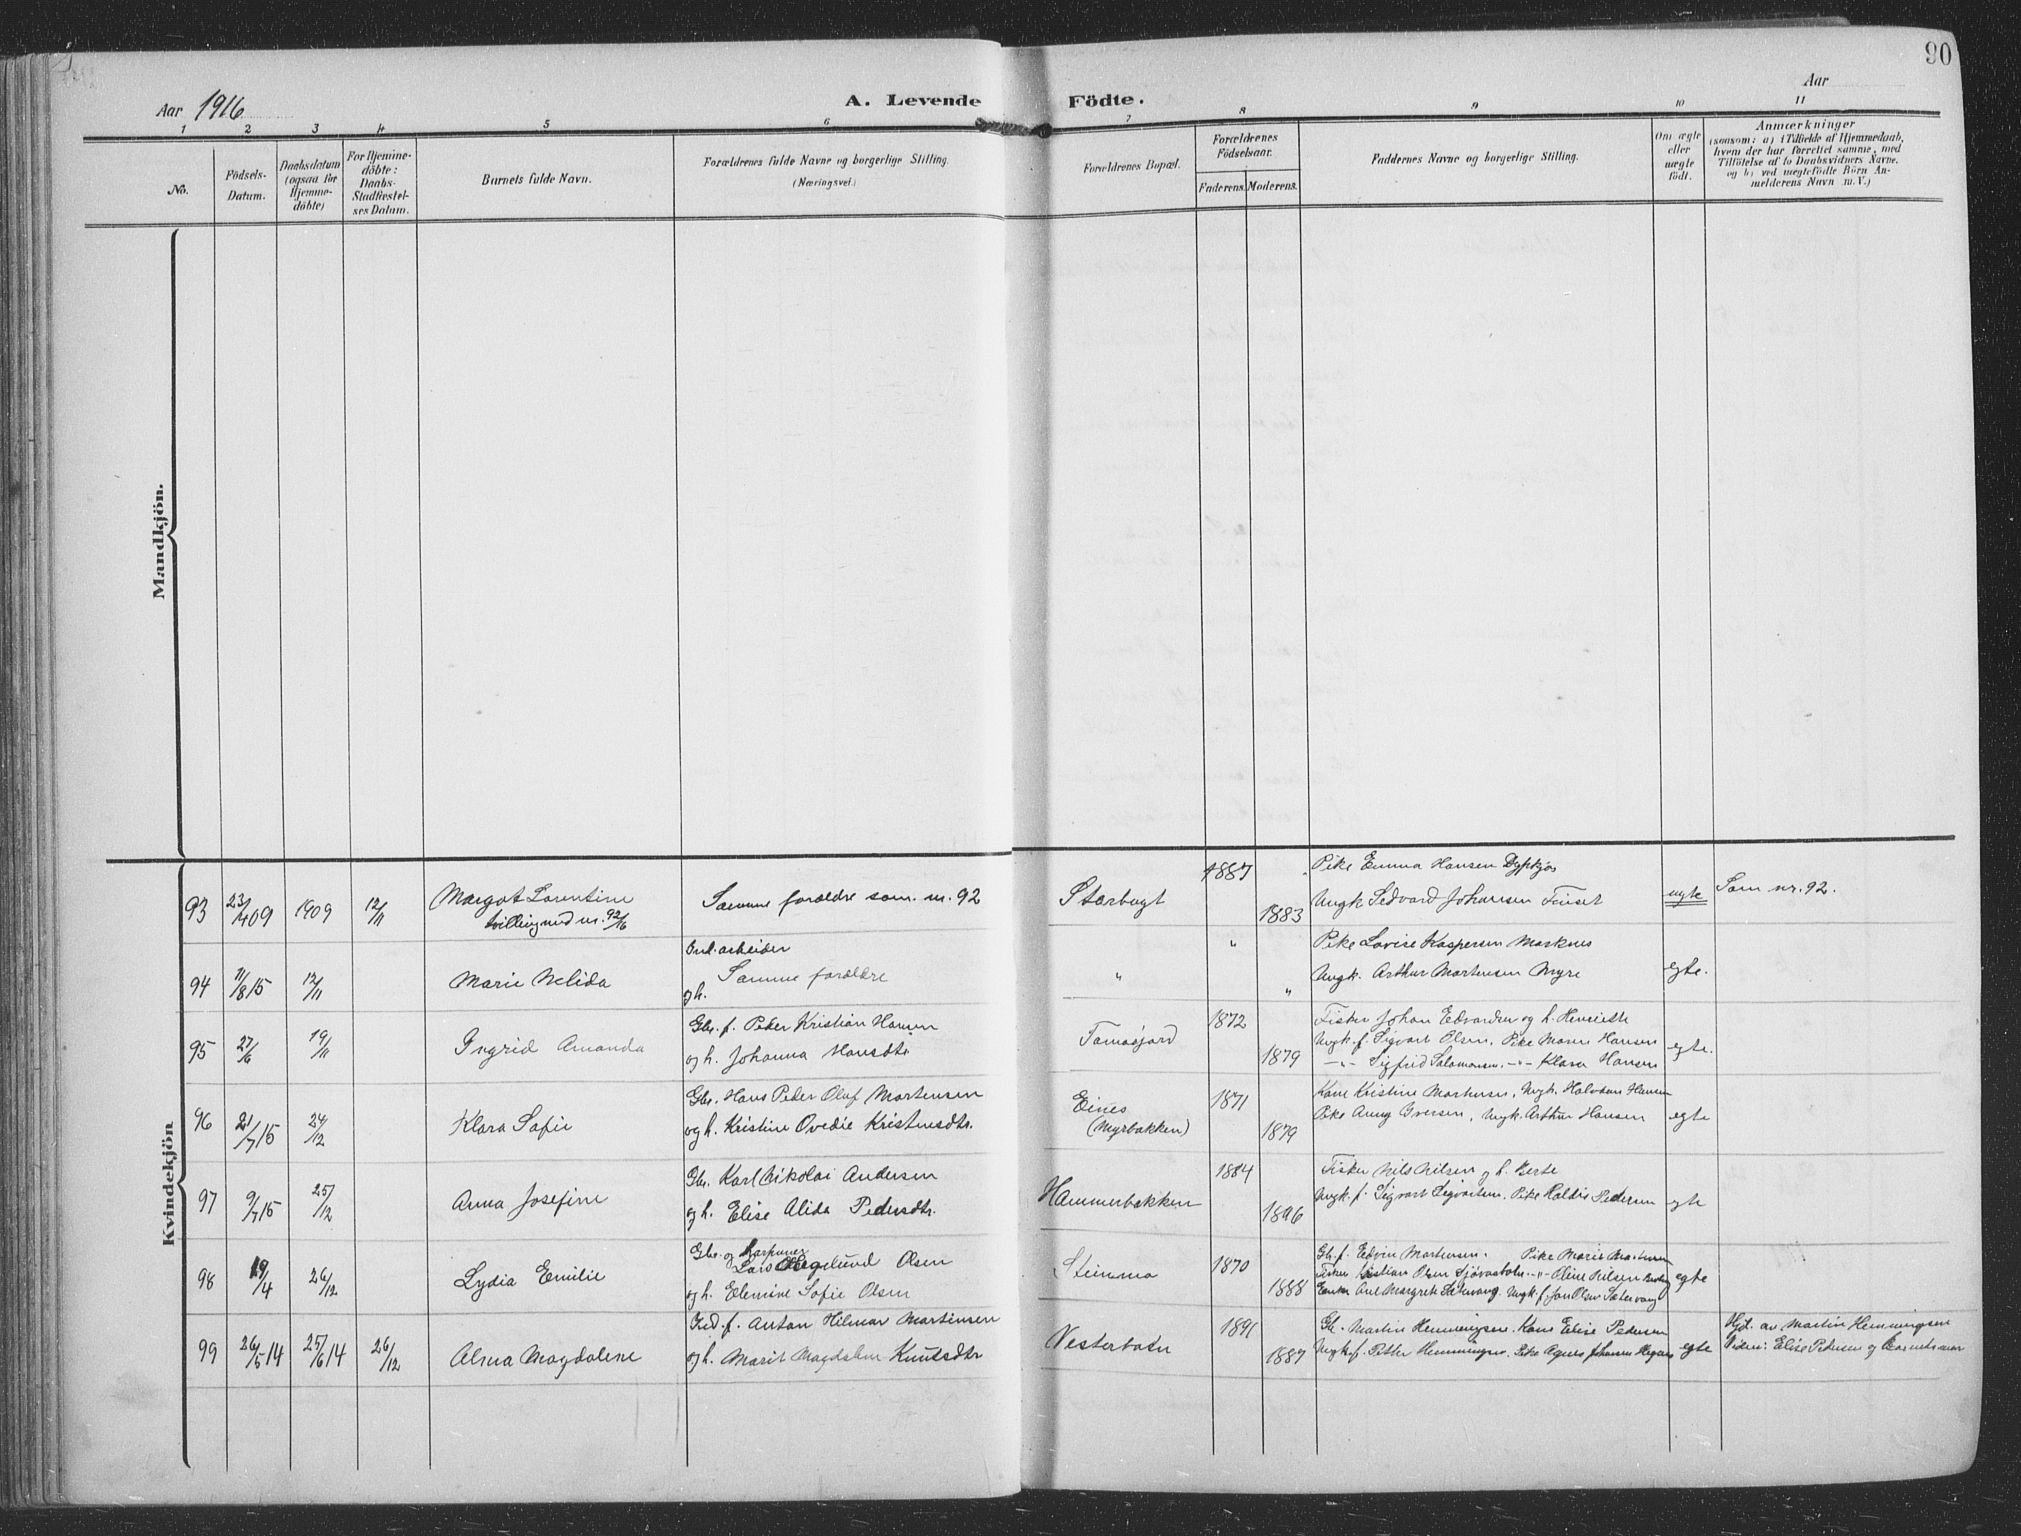 90
Aar 1916
A. Levende Födte.
Aar
1 2 3 4 5 6 7 8 9 10 11
No.
Födsels-
Datum.
Daabsdatum
(ogsaa for
Hjemme-
döbte)
For Hjemme-
döbte:
Daabs-
Stadfæstel-
ses Datum.
Barnets fulde Navn.
Forældrenes fulde Navne og borgerlige Stilling.
(Næringsvei.)
Forældrenes Bopæl.
Forældrenes
Födselsaar.
Faderens. Moderens.
Faddernes Navne og borgerlige Stilling.
Om ægte
eller
uægte
födt.
Anmærkninger
(saasom: a) i Tilfælde af Hjemmedaab,
hvem der har forrettet samme, med
Tilföielse af to Daabsvidners Navne.
og b) ved uægtefödte Börn An-
melderens Navn m. V.)
Mandkjön.
Kvindekjön
93 23/4 09 1909 12/11 Margot Lorentine
tvilling med nr. 92/6
Samme forældre som nr. 92
Storbugt 1887 1883
Pike Emma Hansen Dypkjos
Ungk. Sedvard Johansen Finset
uegte
Som nr. 92.
94 11/8 15 12/11 Marie Nelida
Ind. arbeider
og h. Samme forældre
" " "
Pike Lovise Kaspersen Marknes
Ungk. Arthur Mortensen Myre
egte.
95 27/6 19/11 Ingrid Amanda
Gbr. f. Peder Kristian Hansen
og h. Johanna Hansdtr
Tamosjord 1872 1879
Fisker Johan Edvardsen og h. Henriette
Ungk. f. Sigvart Olsen, Pike Marie Hansen
—"— Sigfrid Salamonsen, —"— Klara Hansen
egte.
96 21/7 15 24/12 Klara Sofie
Gbr. Hans Peder Olaf Mortensen
og h. Kristine Ovedie Kristensdtr.
Eines
(Myrbakken)
1871 1879
Kone Kristine Mortensen, Ungk. Halvdan Hansen
Pike Anny Iversen, Ungk. Arthur Hansen
egte
97 9/7 15 25/12 Anna Josefine
Gbr. Karl Nikolai Andersen
og h. Elise Alida Pedersdtr.
Hammerbakken 1884 1896
Fisker Nils Nilsen og h. Berte
Ungk. f. Sigvart Sigvartsen, Pike Haldis Pedersen
egte
98 19/4 26/12 Lydia Emilie
Gbr. og Harpuner
Lars Hegelund Olsen
og h. Elenine Sofie Olsen
Steinmo 1870 1888
Gb. f. Edvin Mortensen. Pike Marie Mortensen
Fisker Kristian Olsen —"— Oline Nilsen
Enke Ane Margrete Sætervang Ungk. f. Jon Olsen Sætervang
egte
99 26/5 14 25/6 14 26/12 Alma Magdalene
Ind. f. Anton Hilmar Martinsen
og h. Marit Magdalene Knutsdtr
Vesterbotn 1891 1887
Gb. Martin Hemmingsen Kone Elise Pedersen
Ungk. f. Petter Hemmingsen, Pike Agnes Johansen
egte
Hjd. av Martin Hemmingsen
Vidner: Elise Pedersen og Barnets mor